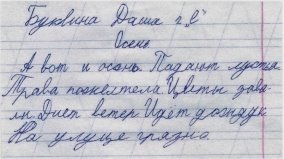 Буквина Даша 2 "б"
Осень
А вот и осень. Падают листя
Трава пожелтела Цветы завя
ли Дует ветер Идёт дождик
На улице грязно